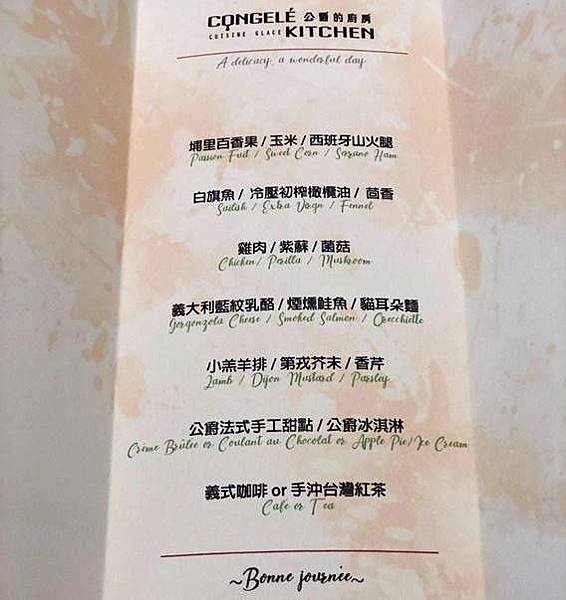 CONGELÉ 公爵的廚房
CUISINE GLACE KITCHEN
A delicacy, a wonderful day
埔里百香果 / 玉米 / 西班牙山火腿
Passion Fuit / Sweet Corn / Serrano Ham
白旗魚 / 冷壓初榨橄欖油 / 茴香
Sailish / Extra Virgn / Fennel
雞肉 / 紫蘇 / 菌菇
Chicken / Perilla / Mushroom
義大利藍紋乳酪 / 煙燻鮭魚 / 貓耳朵麵
Gorgonzola Cheese / Smoked Salmon / Orecchiette
小羔羊排 / 第戎芥末 / 香芹
Lamb / Dijon Mustard / Parsley
公爵法式手工甜點 / 公爵冰淇淋
Crème Brûlée or Coulant au Chocolat or Apple Pie/Ice Cream
義式咖啡 or 手沖台灣紅茶
Café or Tea
~Bonne journée~